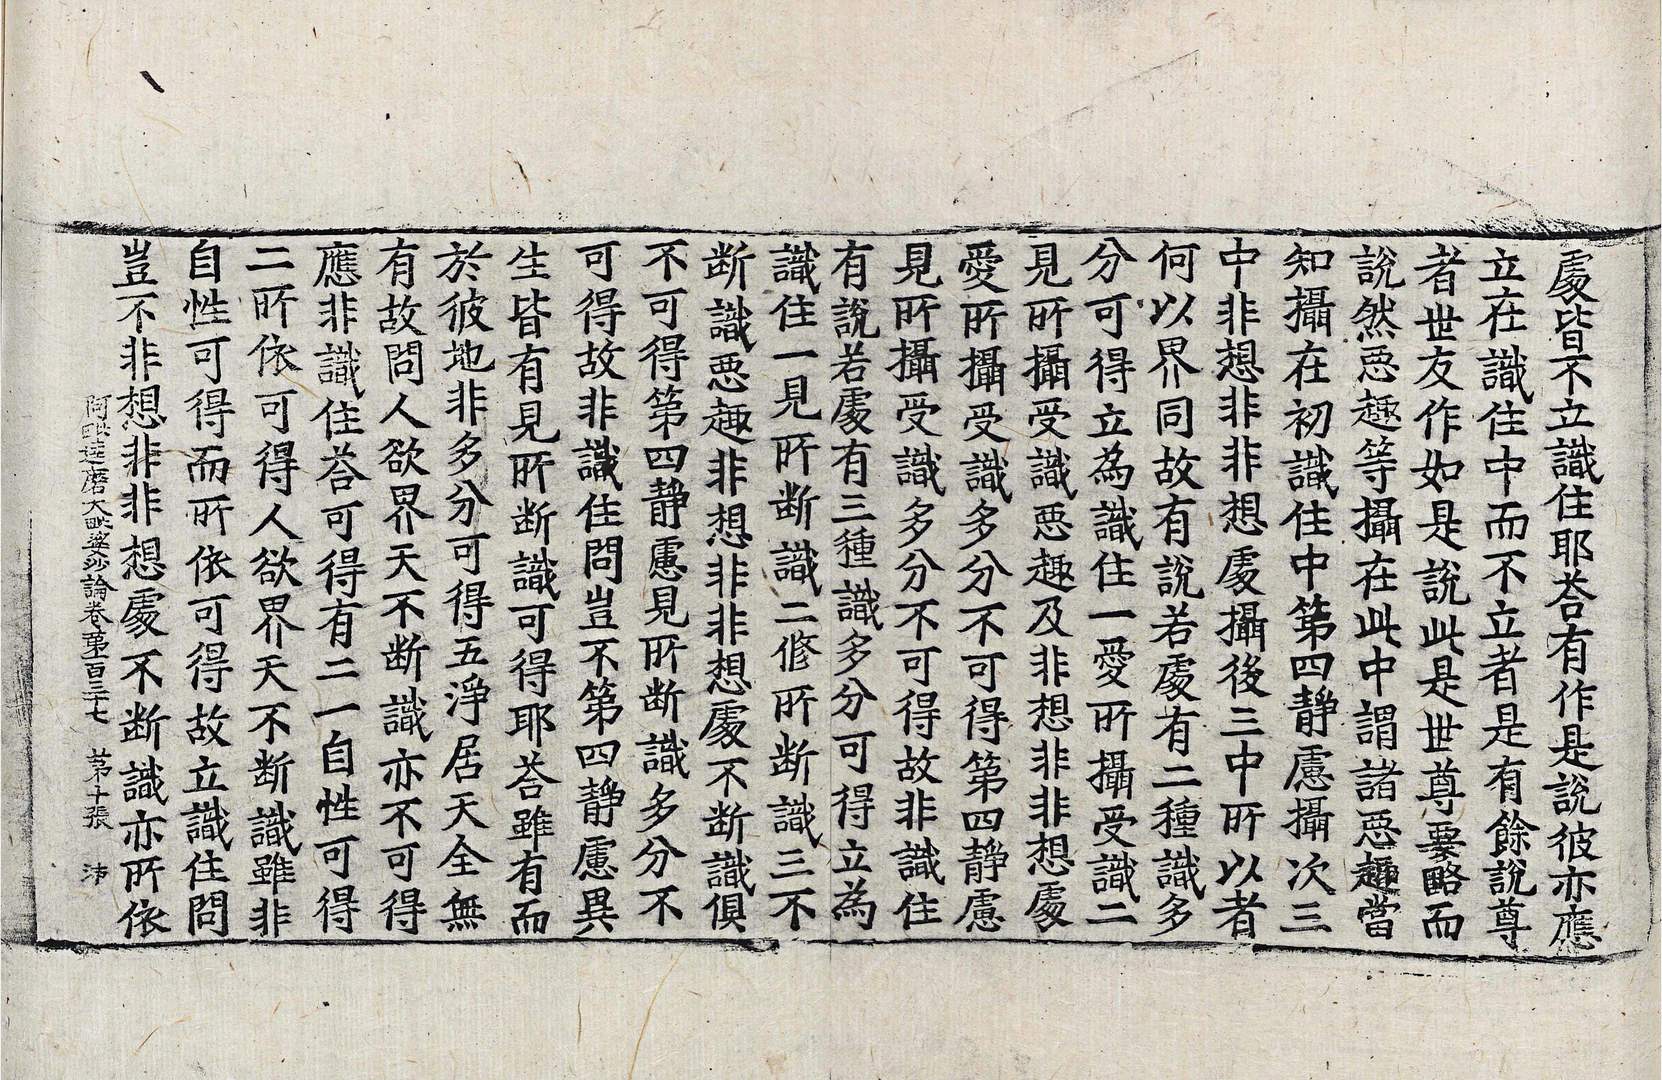 處皆不立識住耶荅有作是說彼亦應
立在識住中而不立者是有餘說尊
者世友作如是說此是世尊要略而
說然惡趣等攝在此中謂諸惡趣當
知攝在初識住中第四靜慮攝次三
中非想非非想處攝後三中所以者
何以界同故有說若處有二種識多
分可得立為識住一愛所攝受識二
見所攝受識惡趣及非想非非想處
愛所攝受識多分不可得第四靜慮
見所攝受識多分不可得故非識住
有說若處有三種識多分可得立為
識住一見所断識二修所断識三不
断識惡趣非想非非想處不断識俱
不可得第四靜慮見所断識多分不
可得故非識住問豈不第四靜慮異
生皆有見所断識可得耶荅雖有而
於彼地非多分可得五淨居天全無
有故問人欲界天不断識亦不可得
應非識住荅可得有二一自性可得
二所依可得人欲界天不断識雖非
自性可得而所依可得故立識住問
豈不非想非非想處不断識亦所依
阿毗達磨大毗婆沙論卷第百三十七 第十張 沛